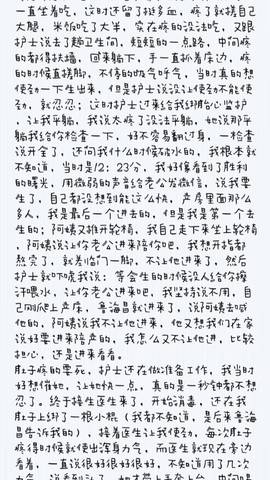 一直坐着吃，这时还留了挺多血，疼了就搓自己
大腿，米饭吃了大半，实在疼的没法吃，又跟
护士说去了趟卫生间，短短的一点路，中间疼
的都得扶墙，回来躺下，手一直抓着床边，疼
的时候直搓脚，不停的吸气呼气，当时真的想
使劲一下生出来，但是护士说没让使劲不能使
劲，就忍忍；这时护士过来给我绑胎心监护
，让我平躺，我说太疼了没法平躺，她说那平
躺我给你检查一下，好不容易翻过身，一检查
说开全了，还问我什么时候破水的，我根本就
不知道，当时是12：23分，我好像看到了胜利
的曙光，用微弱的声音给老公发微信，说我要
生了，自己都没想到能这么快，产房里面那么
多人，我是最后一个进去的，但是我是第一个去
生的；阿姨又推开轮椅，我自己走下来坐上轮椅
，阿姨说让你老公进来陪你吧，我想开指都
熬完了，就差临门一脚，不让他进来了，然后
护士就吓唬我说：等会生的时候没人给你擦
汗喂水，让你老公进来吧，我坚持说不用，自
己刚爬上产床，
说阿姨去喊
他的，阿姨说我不让他进来，他又想我们在家
说好要进来陪产的，我怎么又不让他进，比较
担心，还是进来看看。
肚子疼的要死，护士还在做准备工作，我当时
好想催她，让她快一点，真的是一秒钟都不想
忍了。终于接生医生来了，开始消毒，还在我
肚子上绑了一根小棍（我都不知道，是后来
告诉我的），接着医生让我使劲，每次肚子
疼得时候就使出浑身力气，而医生就现在旁边
看着，一直说很好很好很好，不知道用了几次